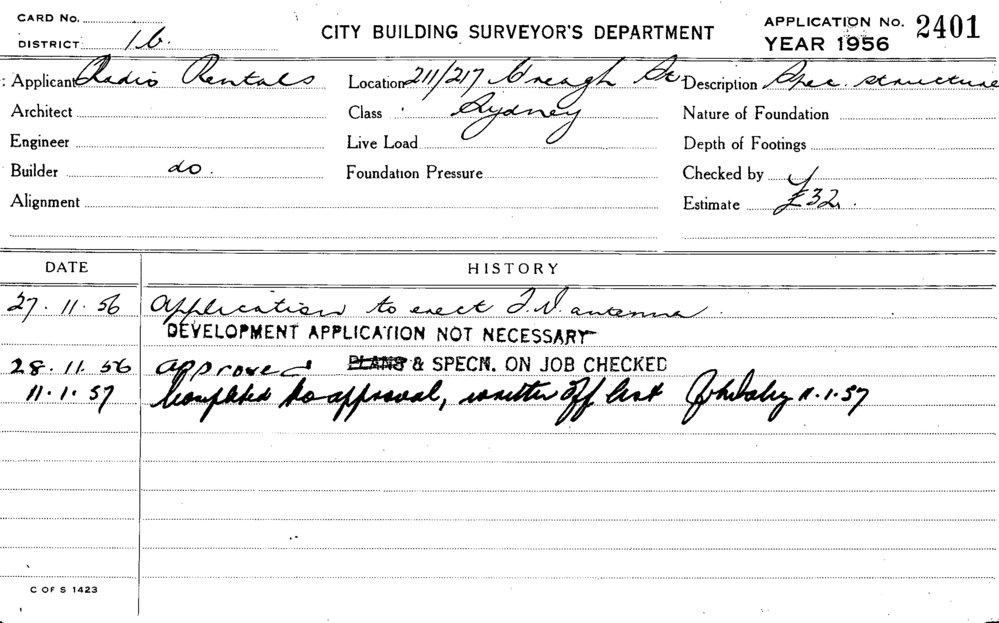 CARD No.
DISTRICT 1b.
CITY BUILDING SURVEYOR'S DEPARTMENT
APPLICATION No. 2401
YEAR 1956
Applicant Radio Rentals
Location 211/217 Creagh St.
Description Spec. structure
Architect
Class Sydney
Nature of Foundation
Engineer
Live Load
Depth of Footings
Builder do.
Foundation Pressure
Checked by
Alignment
Estimate £32.
DATE HISTORY
27. 11. 56 Application to erect T.V. antenna.
DEVELOPMENT APPLICATION NOT NECESSARY
28. 11. 56 approved PLANS & SPECN. ON JOB CHECKED
11. 1. 57 Completed to approval, written off list 11.1.57
C OF S 1423